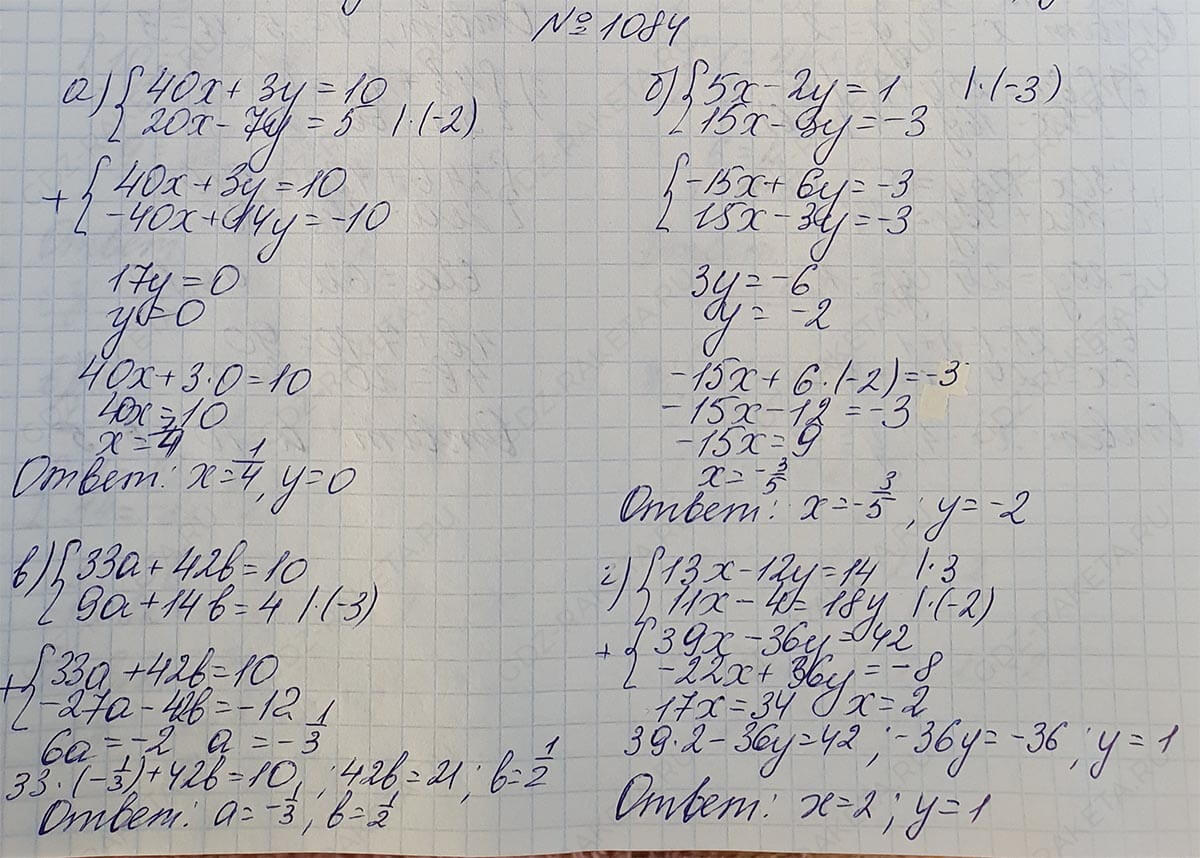 № 1084
а) { 40x + 3y = 10
20x - 7y = 5 |·(-2)
+ { 40x + 3y = 10
-40x + 14y = -10
17y = 0
y = 0
40x + 3·0 = 10
40x = 10
x = 1/4
Ответ: x = 1/4, y = 0
б) { 5x - 2y = 1 |·(-3)
15x - 3y = -3
{ -15x + 6y = -3
15x - 3y = -3
3y = -6
y = -2
-15x + 6·(-2) = -3
-15x - 12 = -3
-15x = 9
x = -3/5
Ответ: x = -3/5; y = -2
в) { 33a + 42b = 10
9a + 14b = 4 |·(-3)
+ { 33a + 42b = 10
-27a - 42b = -12
6a = -2 a = -1/3
33·(-1/3) + 42b = 10; 42b = 21; b = 1/2
Ответ: a = -1/3, b = 1/2
г) { 13x - 12y = 14 |·3
11x - 4 = 18y |·(-2)
+ { 39x - 36y = 42
-22x + 36y = -8
17x = 34 x = 2
39·2 - 36y = 42; -36y = -36; y = 1
Ответ: x = 2; y = 1